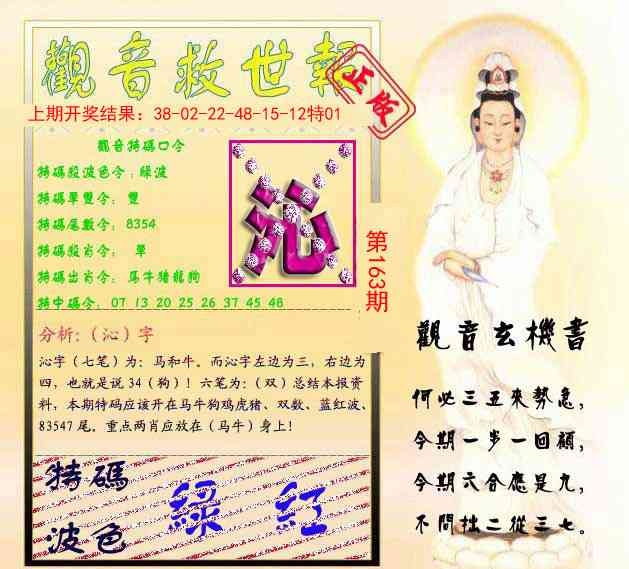 觀音救世報
正版
上期开奖结果：38-02-22-48-15-12特01
觀音特碼口令
特碼殺波色令：綠波
特碼單雙令： 雙
特碼尾數令： 8354
特碼殺肖令： 單
特碼出肖令： 馬牛猪龍狗
特中碼令： 07 13 20 25 26 37 45 48
沁
第163期
分析：（沁）字
沁字（七笔）为：马和牛。而沁字左边为三，右边为
四，也就是说 34（狗）！六笔为：（双）总结本报资
料，本期特码应该开在马牛狗鸡虎猪、双数、蓝红波、
83547 尾。重点两肖应放在（马牛）身上！
特碼
波色
綠 紅
觀音玄機書
何必三五來勢急，
今期一步一回顧，
今期六合應是九，
不問拙二從三七。